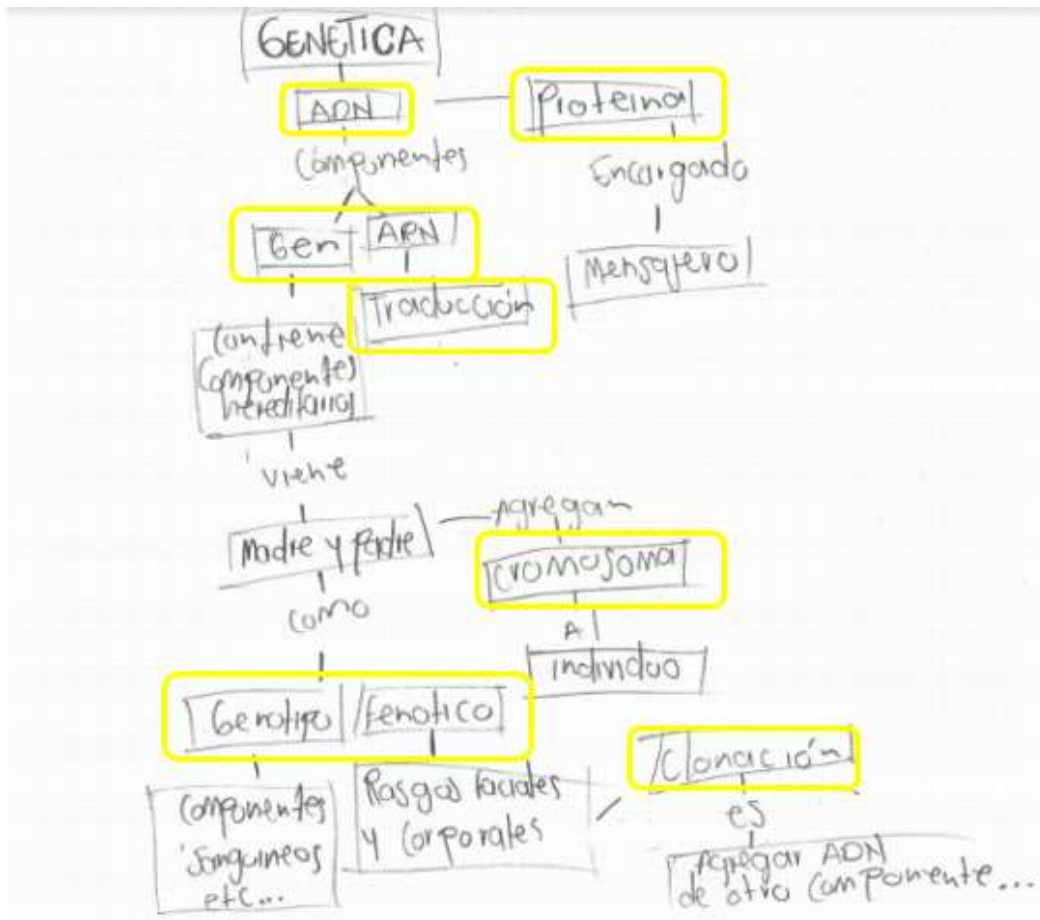 GENETICA
ADN
Proteina
Componentes
Encargado
Gen
ARN
Mensajero
Traducción
Contiene
Componentes
hereditarios
viene
Agregan
Madre y Padre
Cromosoma
como
A
individuo
Genotipo
Fenotico
Clonación
Componentes
Sanguineos
etc...
Rasgos faciales
y Corporales
es
Agregar ADN
de otro Componente...